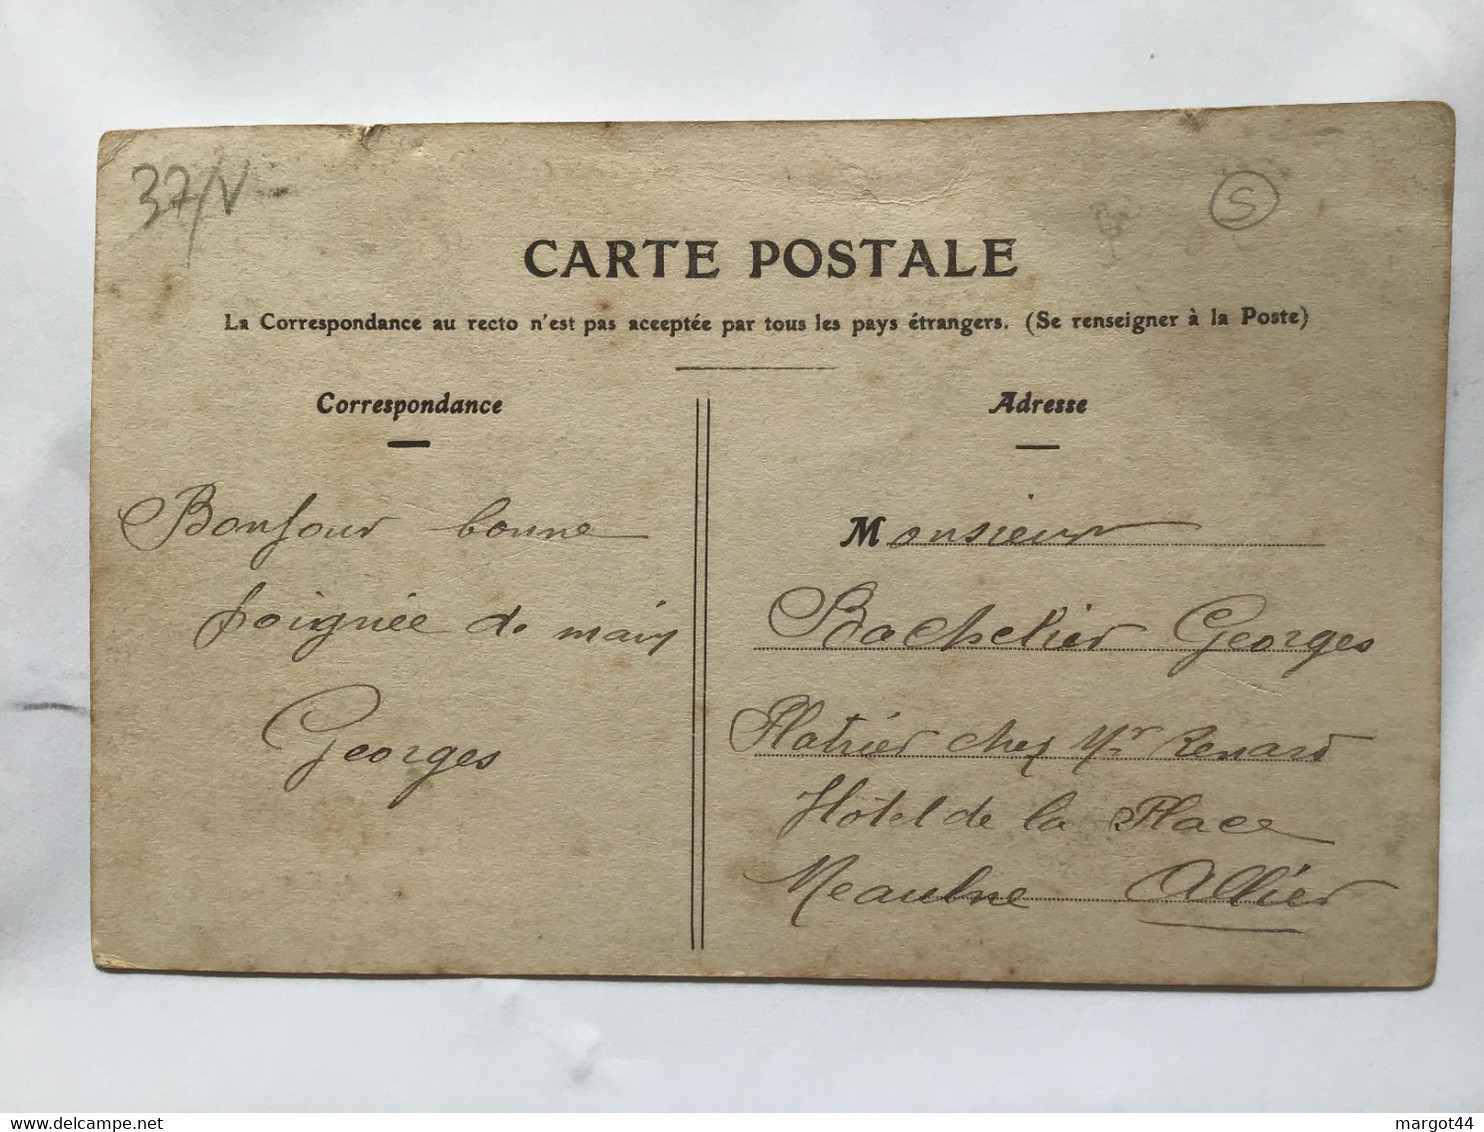 37/V-
S
CARTE POSTALE
La Correspondance au recto n'est pas acceptée par tous les pays étrangers. (Se renseigner à la Poste)
Correspondance
Bonjour bonne
poignée de main
Georges
Adresse
Monsieur
Bachelier Georges
Platrier chez Mr Renard
Hôtel de la Place
Meaulne Allier
delcampe.net
margot44